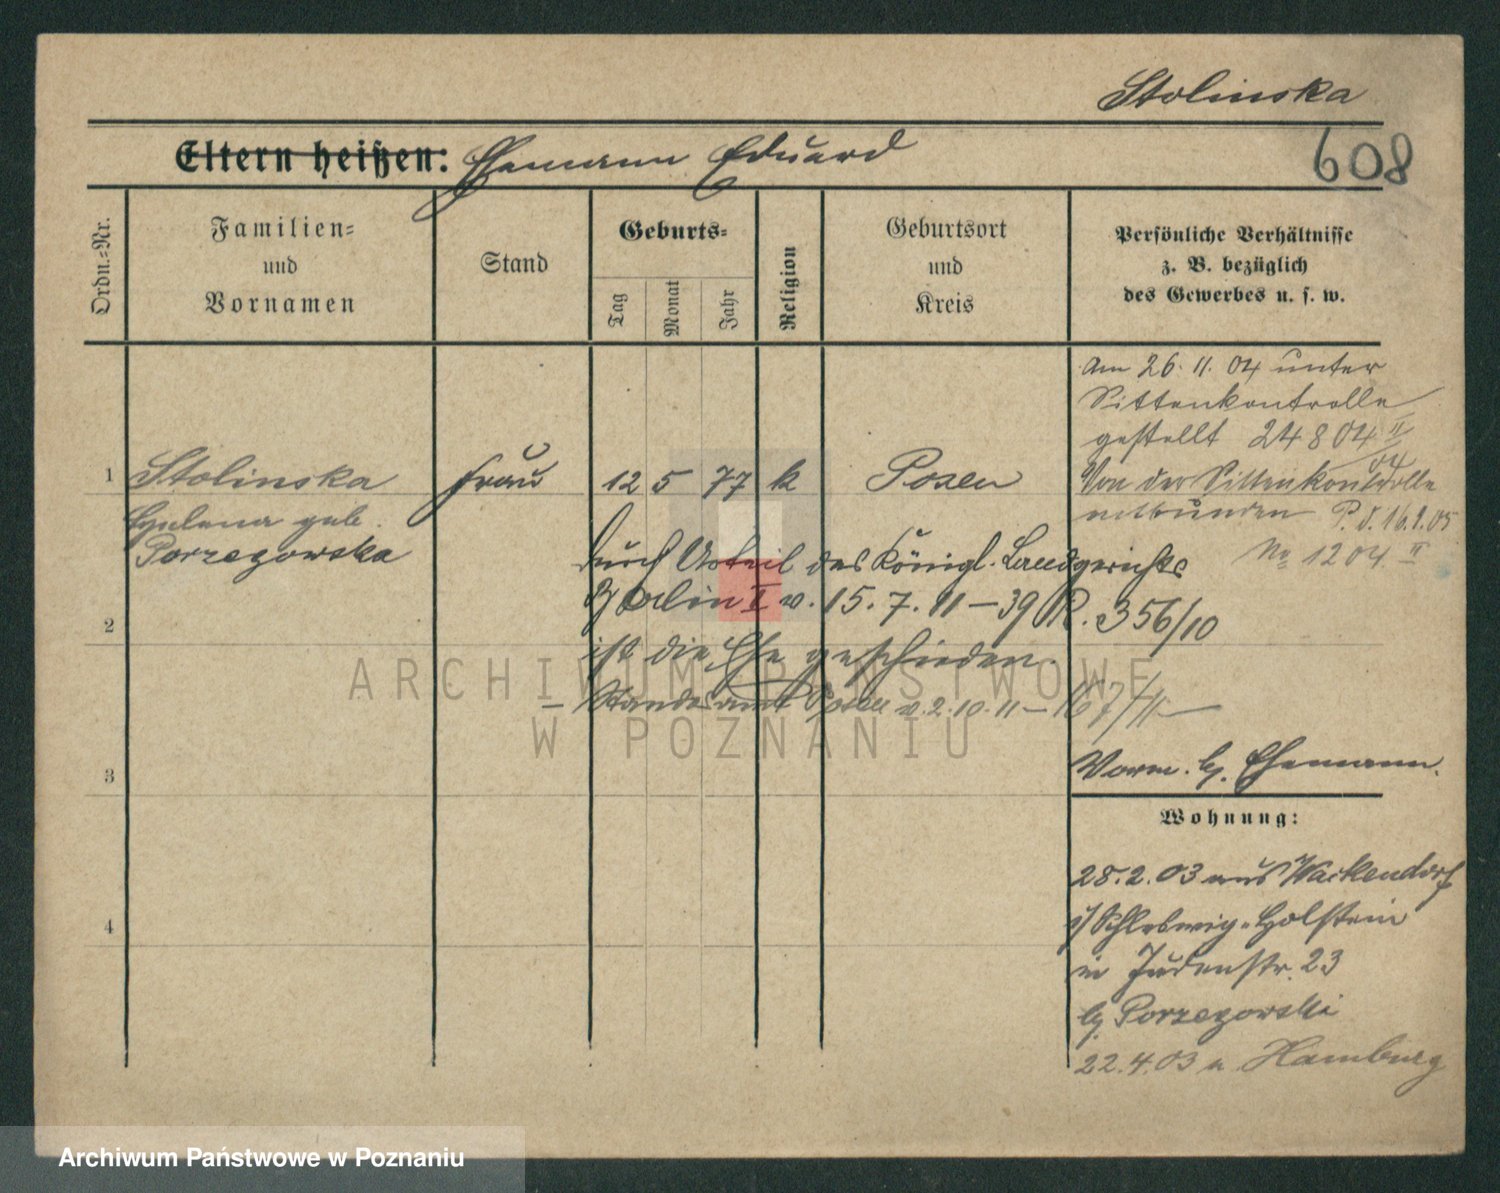 Stolinska
608
Eltern heißen: Ehemann Eduard
Ordn.-Nr.
Familien-
und
Vornamen
Stand
Geburts-
Tag
Monat
Jahr
Religion
Geburtsort
und
Kreis
Persönliche Verhältnisse
z. B. bezüglich
des Gewerbes u. s. w.
Am 26. 11. 04 unter
Sittenkontrolle
gestellt 24804 II
04
Von der Sittenkontrolle
entbunden P. d. 16.1.05
No 1204 II
1 Stolinska Frau 12 5 77 k Posen
Helena geb.
Porzegowska
Durch Urteil des Königl. Landgerichts
Berlin I v. 15. 7. 11 – 39 R. 356/10
ist die Ehe geschieden.
– Standesamt Posen v. 2. 10. 11 – 167/11 –
2
3
4
Vorm. b. Ehemann.
Wohnung:
28.2.03 aus Wackendorf
i/ Schleswig-Holstein
in Judenstr. 23
b. Porzegowski
22.4.03 n. Hamburg
ARCHIWUM PAŃSTWOWE
W POZNANIU
Archiwum Państwowe w Poznaniu